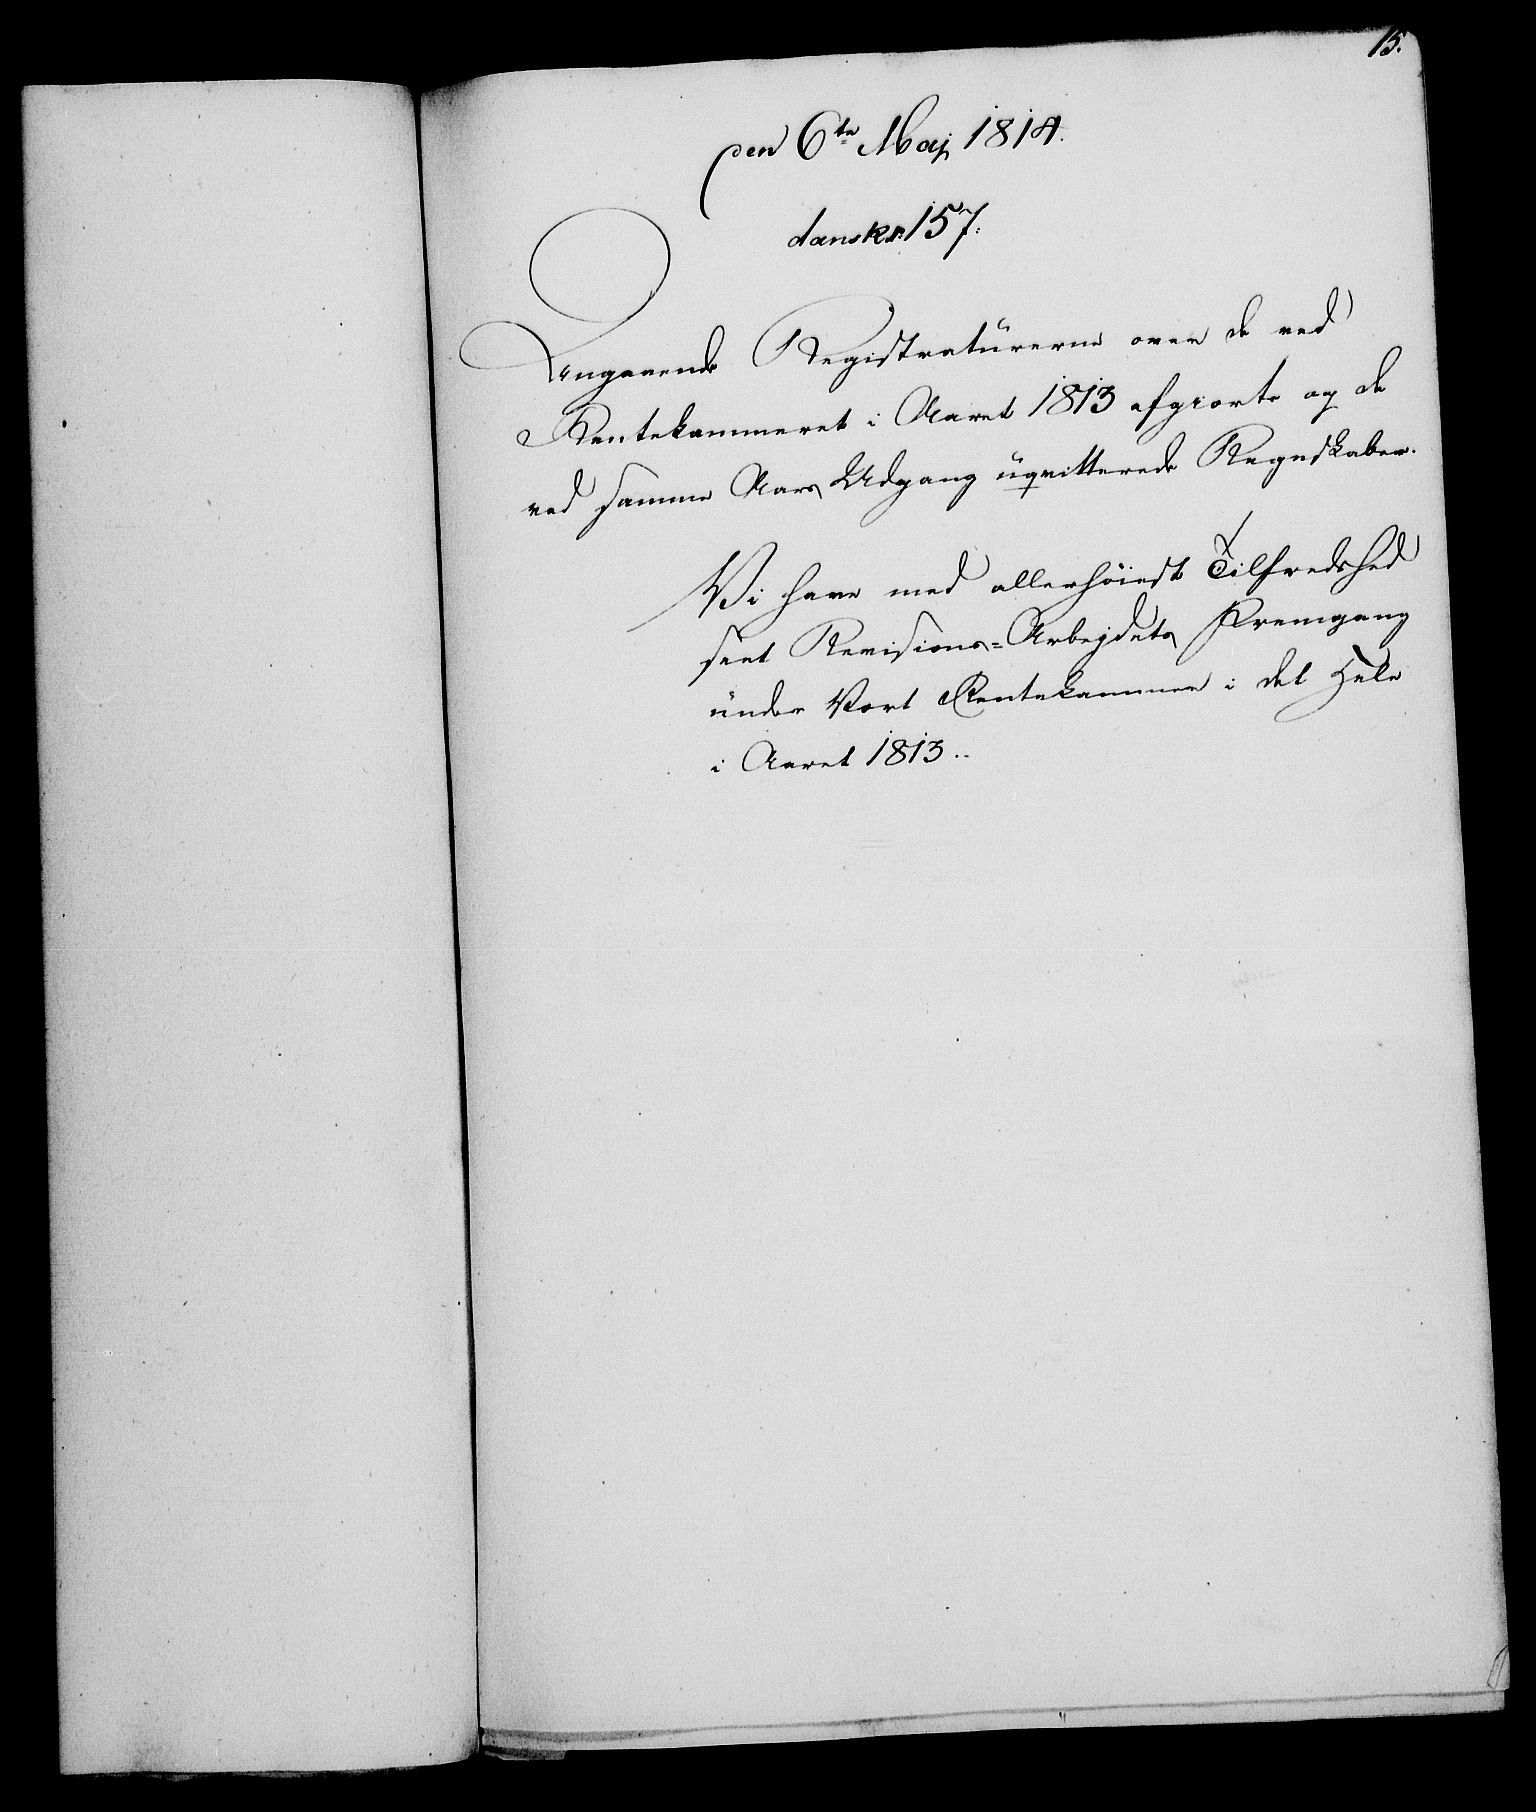 15.
den 6te Maj 1814.
dansk n: 157.
Angaaende Registratürerne over de ved
Rentekammeret i Aaret 1813 afgiorte og de
ved samme Aars Udgang üqvitterede Regnskaber.
Vi have med allerhöieste Tilfredshed
seet Revisions=Arbejdets Fremgang
ünder Vort Rentekammer i det Hele
i Aaret 1813..